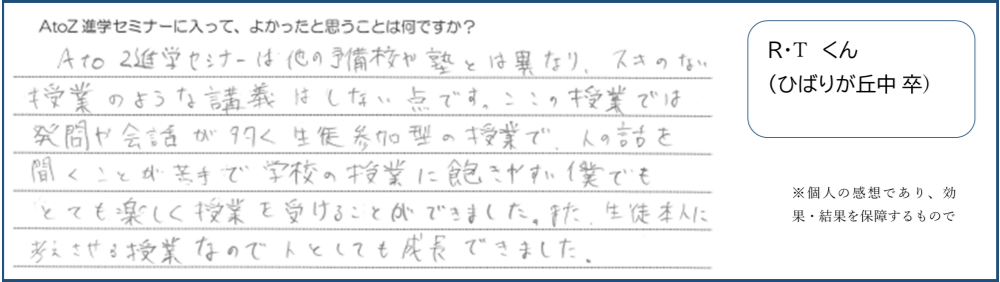 AtoZ 進学セミナーに入って、よかったと思うことは何ですか?
AtoZ進学セミナーは他の予備校や塾とは異なり、スキのない
授業のような講義はしない点です。ここの授業では
発問や会話が多く生徒参加型の授業で、人の話を
聞くことが苦手で学校の授業に飽きやすい僕でも
とても楽しく授業を受けることができました。また、生徒本人に
考えさせる授業なので人としても成長できました。
R・T くん
(ひばりが丘中 卒)
※個人の感想であり、効
果・結果を保障するもので